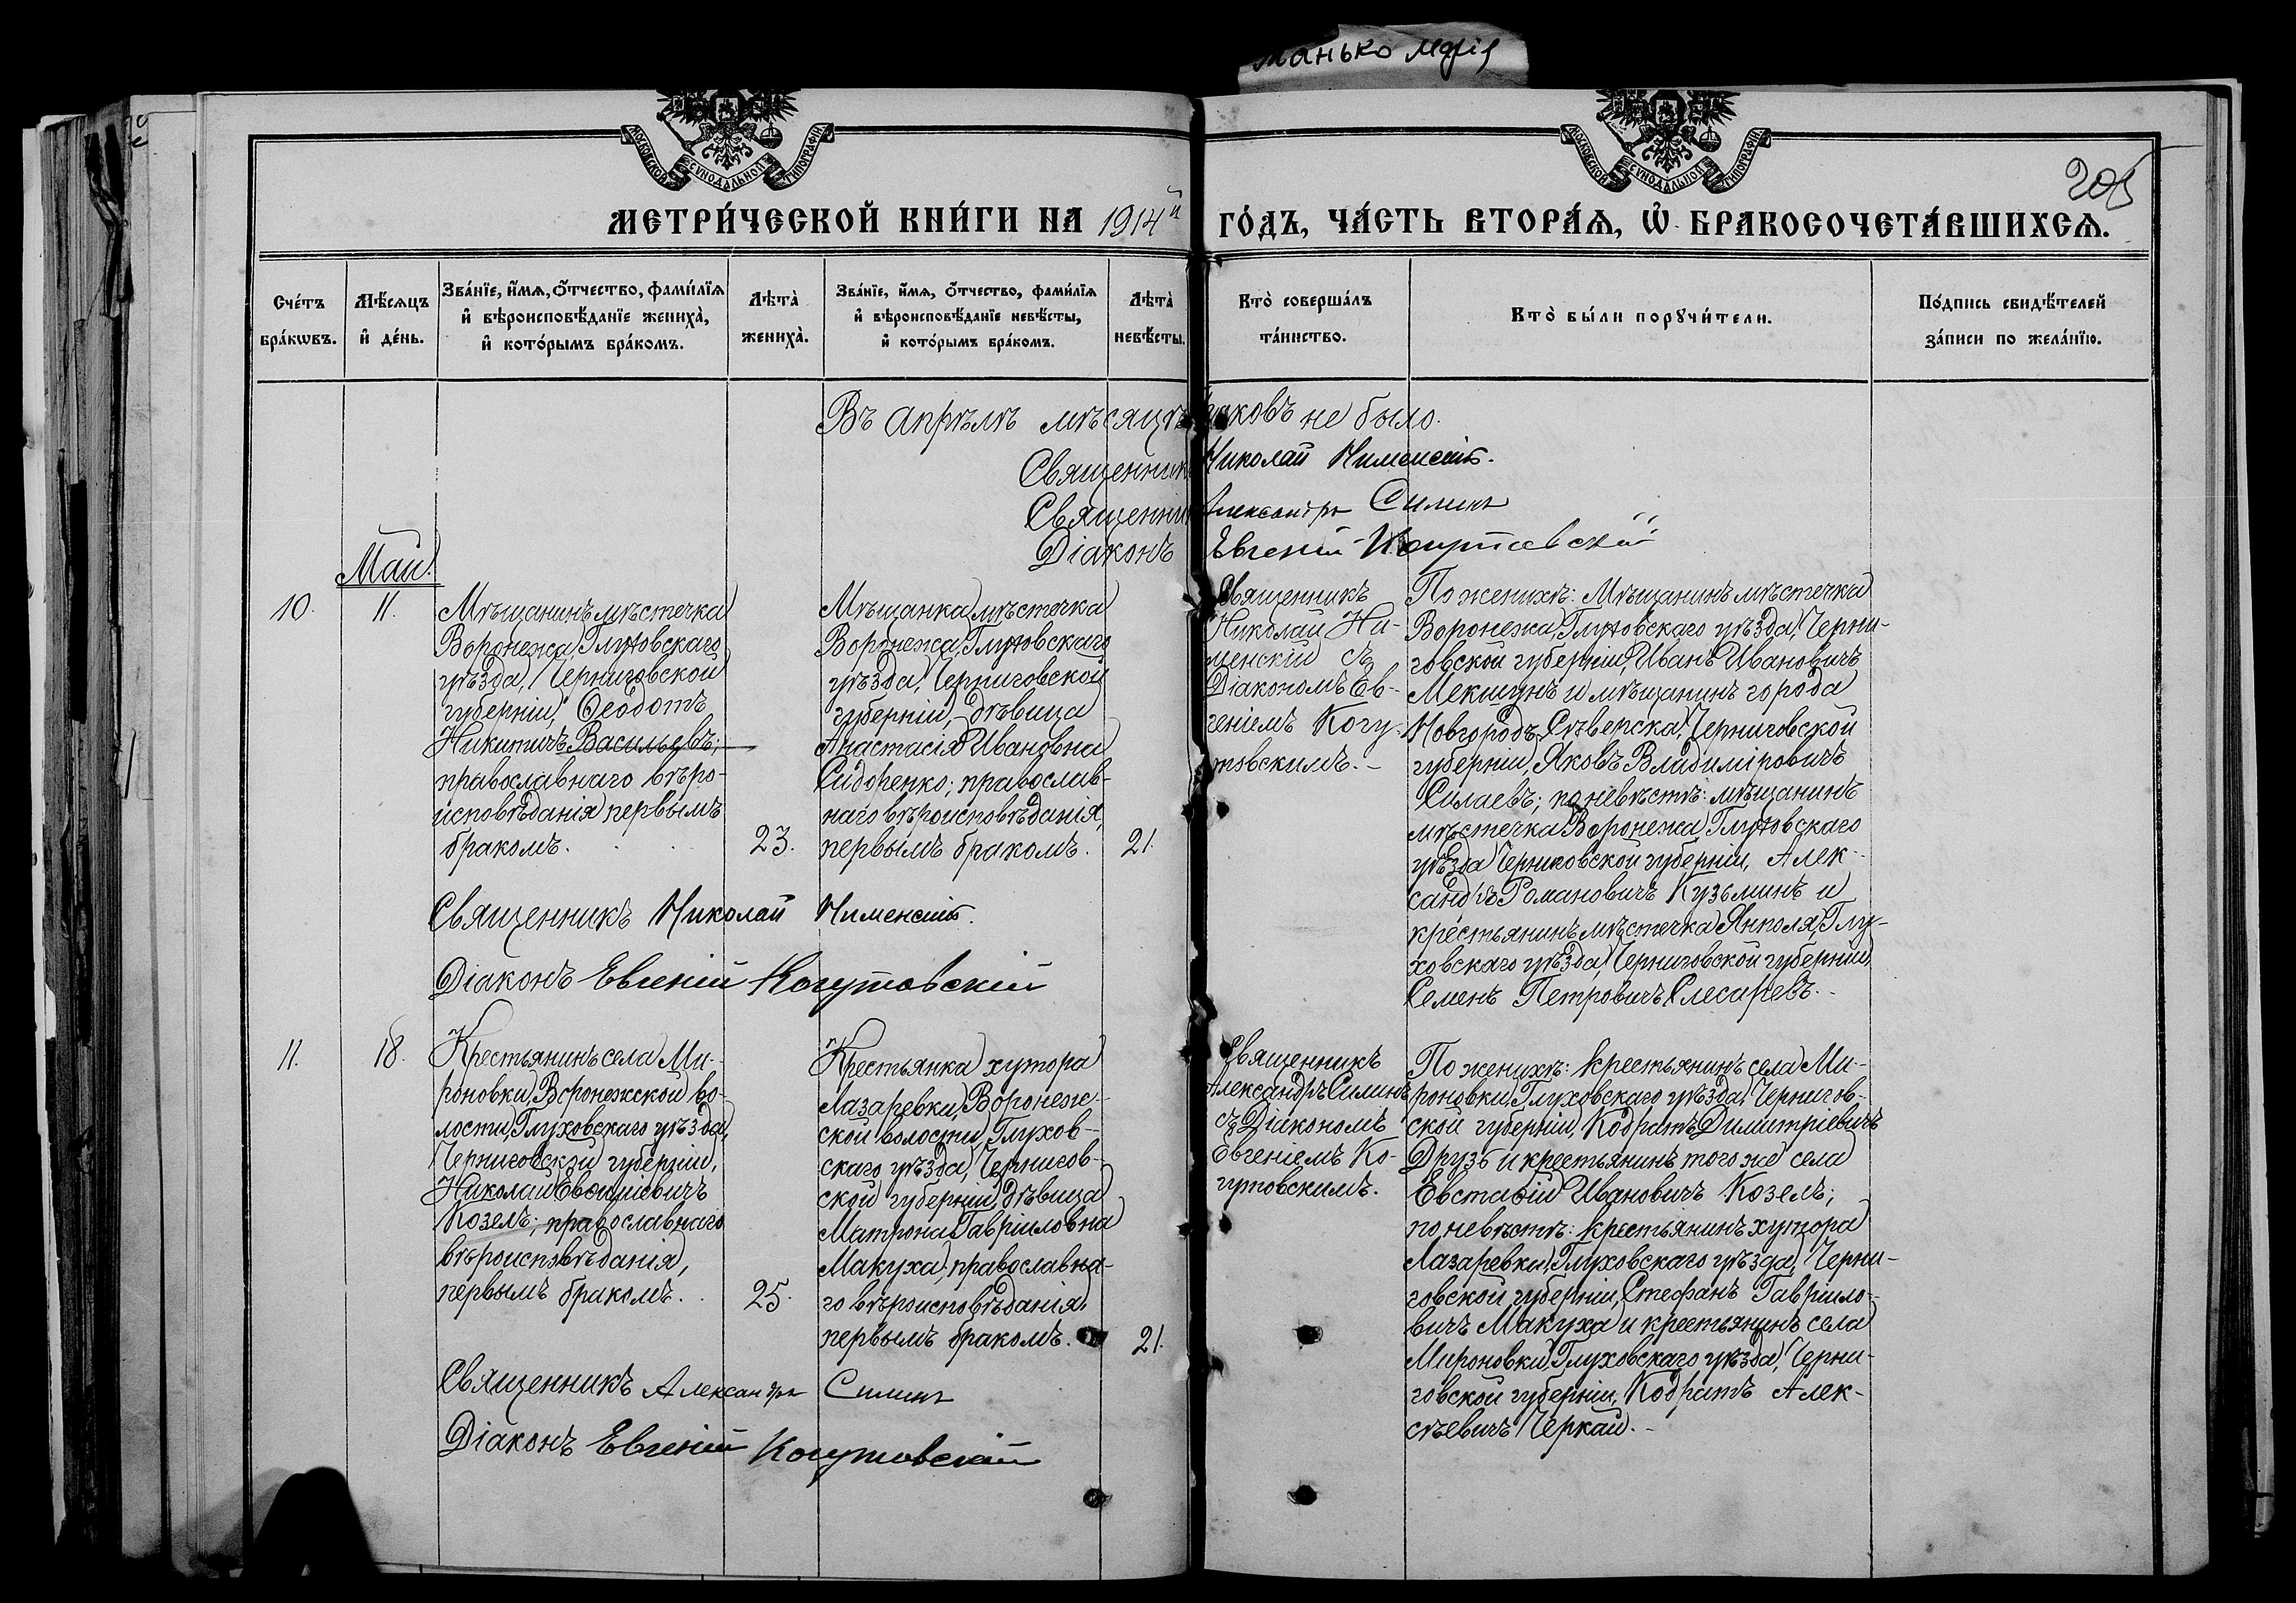 Манько Марія
МОСКОВСКОЙ СѴНОДАЛЬНОЙ ТИПОГРАФІИ
МОСКОВСКОЙ СѴНОДАЛЬНОЙ ТИПОГРАФІИ
205
МЕТРИ́ЧЕСКОЙ КНИ́ГИ НА 1914й ГО́ДЪ, ЧА́СТЬ ВТОРА́Ѧ, Ѡ҆ БРАКОСОЧЕТА́ВШИХСѦ.
Сче́тъ
бра́кѡвъ.
Мѣ́сѧцъ
и҆ де́нь.
Зва́нїе, и҆́мѧ, ѻ҆́тчество, фами́лїѧ
и҆ вѣроисповѣ́данїе жениха̀,
и҆ кото́рымъ бра́комъ.
Лѣта̀
жениха̀.
Зва́нїе, и҆́мѧ, ѻ҆́тчество, фами́лїѧ
и҆ вѣроисповѣ́данїе невѣ́сты,
и҆ кото́рымъ бра́комъ.
Лѣта̀
невѣ́сты.
Кто̀ соверша́лъ
та́инство.
Кто̀ бы́ли порꙋчи́тели.
По́дпись свидѣ́телей
за́писи по жела́нїю.
Въ Апрѣлѣ мѣсяцѣ браковъ не было.
Священникъ Николай Нименскій.
Священникъ Александръ Силинъ
Діаконъ Евгеній Когутовскій
Май.
10.
11.
Мѣщанинъ мѣстечка
Воронежа, Глуховскаго
уѣзда, Черниговской
губерніи, Ѳеодотъ
Никитичъ Васильевъ;
православнаго вѣро-
исповѣданія, первымъ
бракомъ.
23.
Мѣщанка мѣстечка
Воронежа, Глуховскаго
уѣзда, Черниговской
губерніи, дѣвица
Анастасія Ивановна
Сидоренко; православ-
наго вѣроисповѣданія,
первымъ бракомъ.
21.
Священникъ
Николай Ни-
менскій съ
Діакономъ Ев-
геніемъ Когу-
товскимъ.-
По женихѣ: Мѣщанинъ мѣстечка
Воронежа, Глуховскаго уѣзда, Черни-
говской губерніи, Иванъ Ивановичъ
Мекшунъ и мѣщанинъ города
Новгородъ-Сѣверска, Черниговской
губерніи, Яковъ Владиміровичъ
Силаевъ; по невѣстѣ: мѣщанинъ
мѣстечка Воронежа, Глуховскаго
уѣзда Черниговской губерніи, Алек-
сандръ Романовичъ Кузьминъ и
крестьянинъ мѣстечка Янполя, Глу-
ховскаго уѣзда, Черниговской губерніи
Семенъ Петровичъ Слесаревъ.-
Священникъ Николай Нименскій.
Діаконъ Евгеній Когутовскій
11.
18.
Крестьянинъ села Ми-
роновки, Воронежской во-
лости, Глуховскаго уѣзда,
Черниговской губерніи,
Николай Евфиміевичъ
Козелъ; православнаго
вѣроисповѣданія,
первымъ бракомъ.
25.
Крестьянка хутора
Лазаревки, Воронеж-
ской волости, Глухов-
скаго уѣзда, Чернигов-
ской губерніи, дѣвица
Матрона Гавріиловна
Макуха; православна-
го вѣроисповѣданія,
первымъ бракомъ.
21.
Священникъ
Александръ Силинъ
съ Діакономъ
Евгеніемъ Ко-
гутовскимъ.
По женихѣ: крестьянинъ села Ми-
роновки, Глуховскаго уѣзда, Чернигов-
ской губерніи, Кодратъ Димитріевичъ
Друзь и крестьянинъ того же села
Евстафій Ивановичъ Козелъ;
по невѣстѣ: крестьянинъ хутора
Лазаревки, Глуховскаго уѣзда, Черни-
говской губерніи, Стефанъ Гавріило-
вичъ Макуха и крестьянинъ села
Мироновки, Глуховскаго уѣзда, Черни-
говской губерніи, Кодратъ Алек-
сѣевичъ Черкай.-
Священникъ Александръ Силинъ
Діаконъ Евгеній Когутовскій